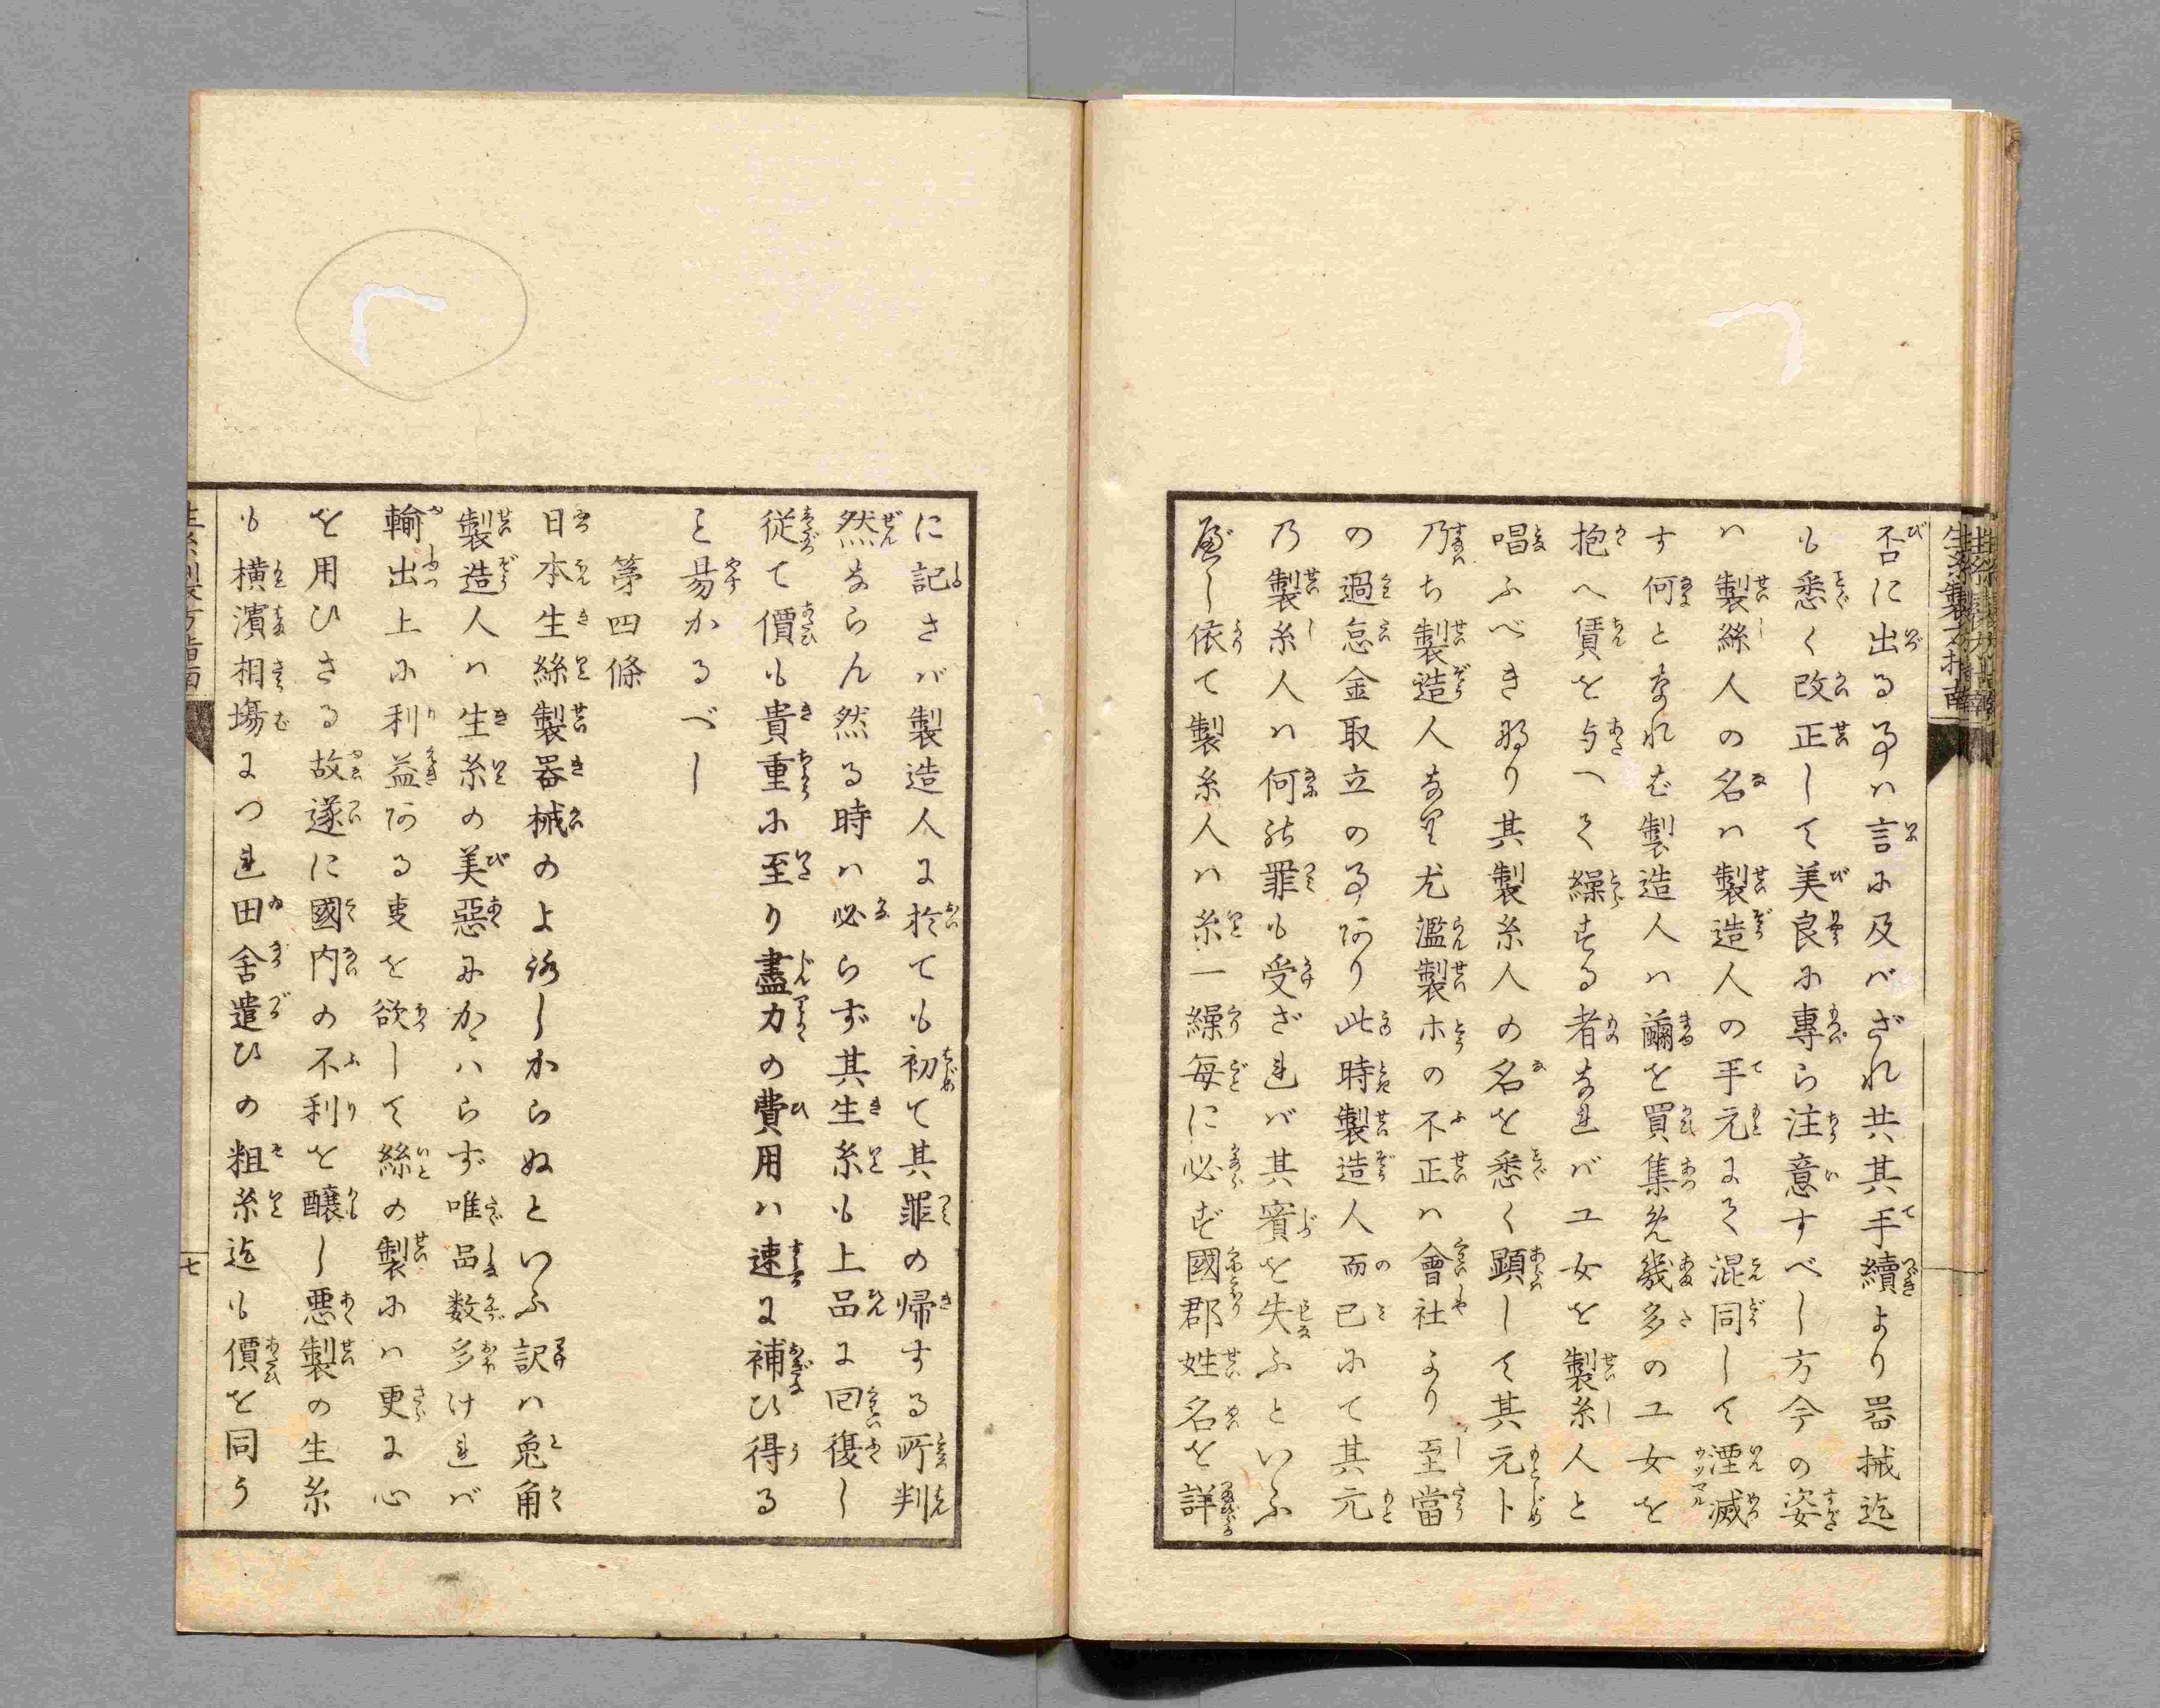 否に出る事ハ言に及バざれ共其手續より器械迄
も悉く改正して美良に專ら注意すべし方今の姿
ハ製絲人の名ハ製造人の手元にて混同して湮滅
す何となれむ製造人ハ繭を買集め幾多の工女を
抱へ賃を与へて繰する者なれバ工女を製糸人と
唱ふべき也其製糸人の名を悉く顕して其元卜
乃ち製造人なり尤濫製ホの不正ハ會社より至當
の過怠金取立の事あり此時製造人而已にて其元
乃製糸人ハ何の罪も受ざれバ其實を失ふといふ
べし依て製糸人ハ糸一繰毎に必ず國郡姓名を詳
に記さバ製造人に於ても初て其罪の帰する所判
然ならん然る時ハ必らず其生糸も上品に回復し
従て價も貴重に至り盡力の費用ハ速に補ひ得る
こと易かるべし
第四條
日本生絲製器械のよろしからぬといふ訳ハ兎角
製造人ハ生糸の美惡にかゝハらず唯品数多けれバ
輸出上に利益ある事を欲して絲の製にハ更に心
を用ひさる故遂に國内の不利を醸し悪製の生糸
も横濱相場につれ田舎遣ひの粗糸迄も價を同う
生糸製方指南
七